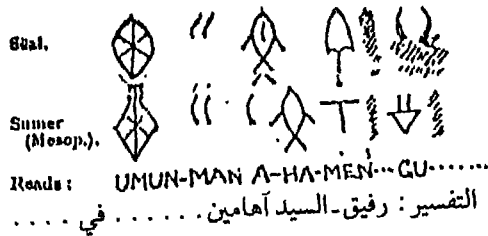 Seal.
Sumer
(Mesop.).
Reads: UMUN-MAN A-HA-MEN...GU.......
التفسير: رفيق-السيد آهامين....... في....